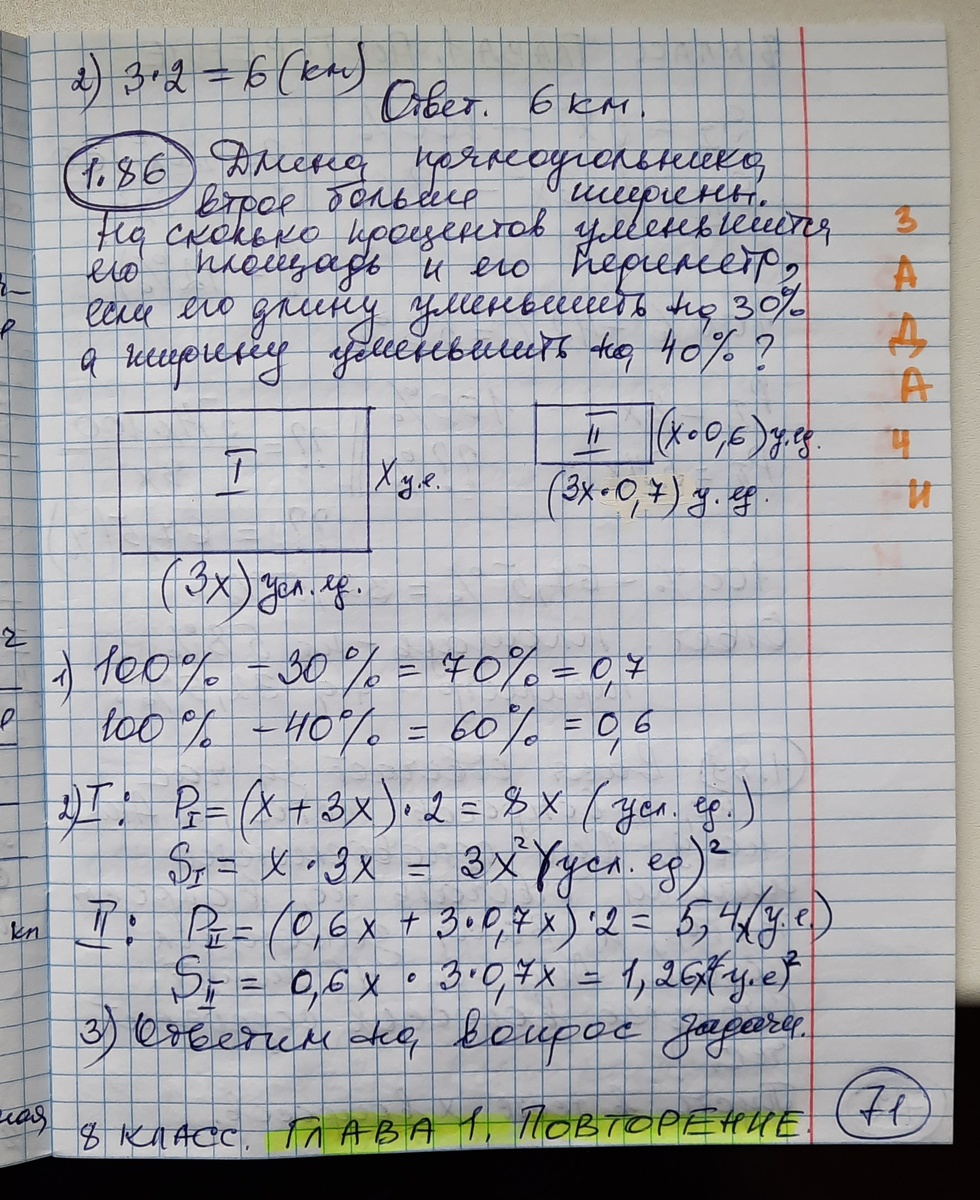 2) 3·2 = 6 (км)
Ответ. 6 км.
1.86 Длина прямоугольника
втрое больше ширины.
На сколько процентов уменьшится
его площадь и его периметр,
если его длину уменьшить на 30%
а ширину уменьшить на 40%?
I
II
(x·0,6) у.ед.
x у.е.
(3x·0,7) у.ед.
(3x) усл. ед.
1) 100% - 30% = 70% = 0,7
100% - 40% = 60% = 0,6
2) I: P_I = (x + 3x)·2 = 8x (усл. ед.)
S_I = x · 3x = 3x² (усл. ед)²
II: P_II = (0,6x + 3·0,7x)·2 = 5,4x (у.е.)
S_II = 0,6x · 3·0,7x = 1,26x² (у.е)²
3) Ответим на вопрос задачи.
8 КЛАСС. ГЛАВА 1. ПОВТОРЕНИЕ.
71
З
А
Д
А
Ч
И